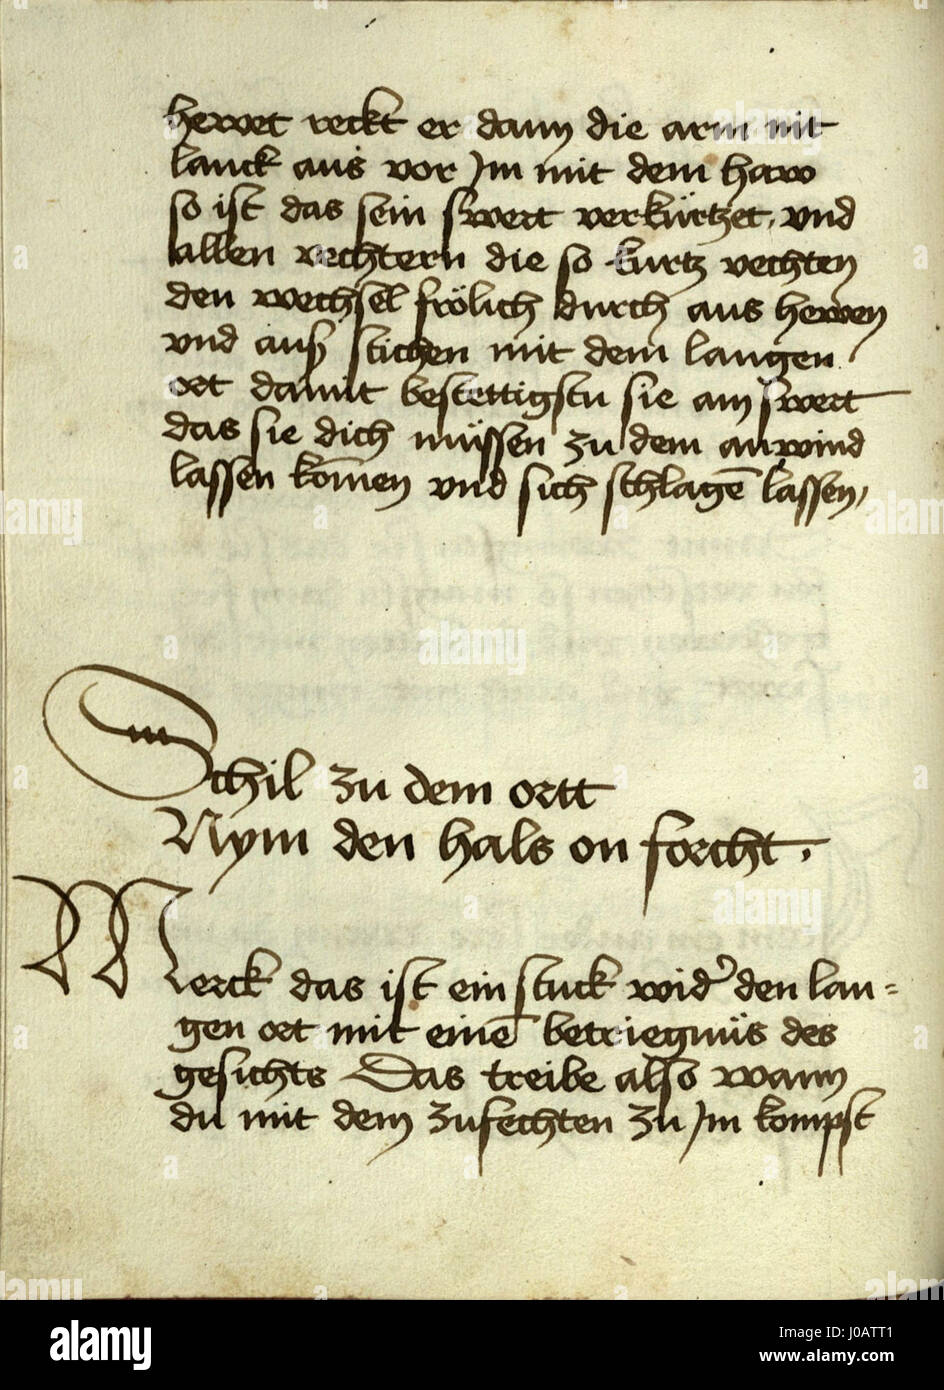 hewet reckt er dann die arm nit
lanck aus vor Jm mit dem haw
so ist das sein swert verkürtzet, vnd
allen vechtern die so kurtz vechten
den wechsel frölich durch aus hewen
vnd auß stichen mit dem langen
ort damit bestettigstu sie am swert
das sie dich müssen zu dem anwind
lassen komen vnd sich schlagē lassen,
Schil zu dem ortt
Nym den hals on forcht.
Merck das ist ein stuck wid' den lan=
gen ort mit einē betriegnüs des
gesichts Das treibe also wann
du mit dem zufechten zu Jm kompst
alamy
Image ID: J0ATT1
www.alamy.com